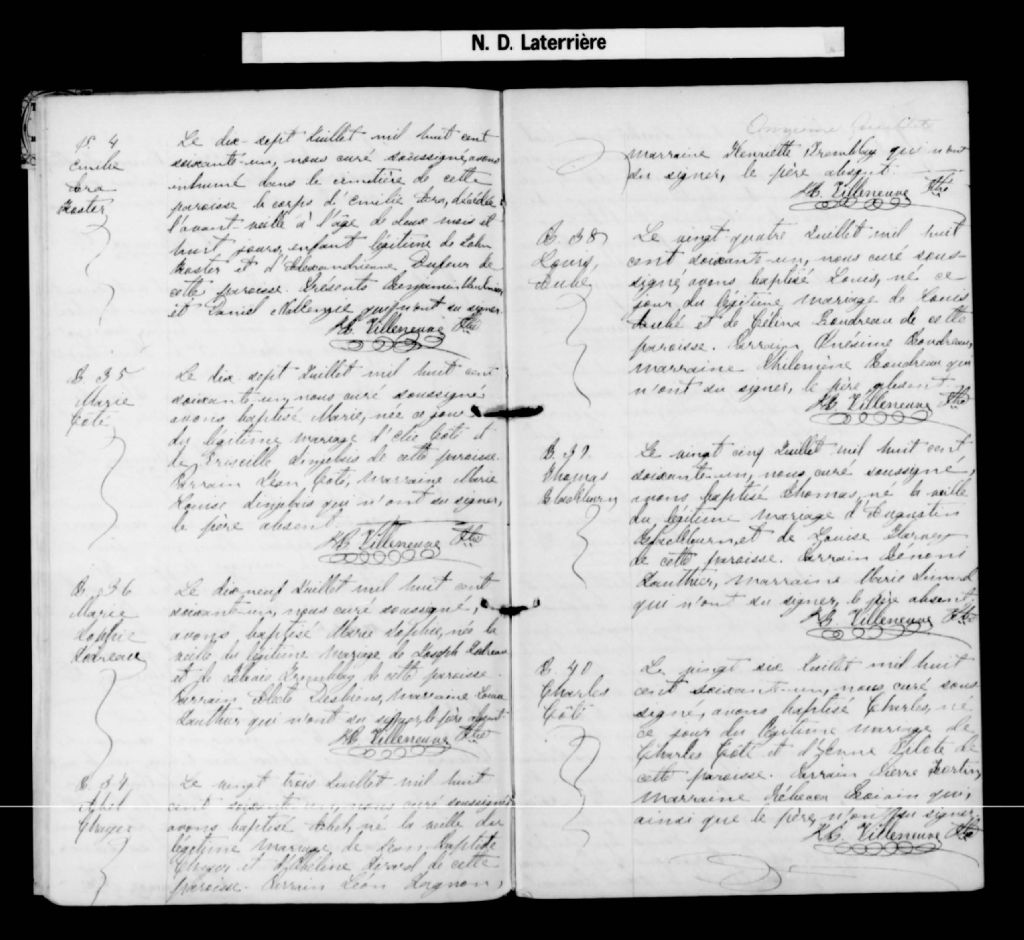 N. D. Laterrière
S. 4
Emilie
Foster
Le dix-sept Juillet mil huit cent
soixante-un, nous curé soussigné, avons
inhumé dans le cimetière de cette
paroisse le corps d'Emilie décédée
l'avant-veille à l'âge de deux mois et
huit jours, enfant légitime de John
Foster et d'Alexandrienne Dufour de
cette paroisse. Présents Benjamin
et Daniel McKenzie qui n'ont su signer.
Villeneuve Ptre
B. 35
Marie
Côté
Le dix sept Juillet mil huit cent
soixante-un, nous curé soussigné
avons baptisé Marie, née ce jour
du légitime mariage d'Elie Côté et
de Priscille de cette paroisse.
Parrain Léon Côté, marraine Marie
Louise qui n'ont su signer,
le père absent.
Villeneuve Ptre
B. 36
Marie
Sophie
Le dix neuf Juillet mil huit cent
soixante-un, nous curé soussigné,
avons baptisé Marie Sophie, née la
veille du légitime mariage de Joseph
et de Tremblay de cette paroisse.
Parrain Desbiens, marraine
Gauthier qui n'ont su signer, le père absent
Villeneuve Ptre
B. 37
Le vingt trois Juillet mil huit
cent soixante-un, nous curé soussigné
avons baptisé né la veille du
légitime mariage de Jean Baptiste
et de cette
paroisse. Parrain Léon
Onzième
marraine Henriette Tremblay qui n'ont
su signer, le père absent.
Villeneuve Ptre
B. 38
Louis
Aubé
Le vingt quatre Juillet mil huit
cent soixante-un, nous curé sous-
signé avons baptisé Louis, né ce
jour du légitime mariage de Louis
Aubé et de Célina Boudreau de cette
paroisse. Parrain Onésime Boudreau,
marraine Philomène Boudreau qui
n'ont su signer, le père absent
Villeneuve Ptre
B. 39
Thomas
Blackburn
Le vingt cinq Juillet mil huit cent
soixante-un, nous, curé soussigné,
avons baptisé Thomas, né la veille
du légitime mariage d'Augustin
Blackburn et de Louise
de cette paroisse. Parrain Bénoni
Gauthier, marraine Marie
qui n'ont su signer, le père absent
Villeneuve Ptre
B. 40
Charles
Côté
Le vingt six Juillet mil huit
cent soixante-un, nous curé sous-
signé, avons baptisé Charles, né
ce jour du légitime mariage de
Charles Côté et Pilote de
cette paroisse. Parrain Pierre Fortin,
marraine Rébecca qui,
ainsi que le père, n'ont su signer
Villeneuve Ptre